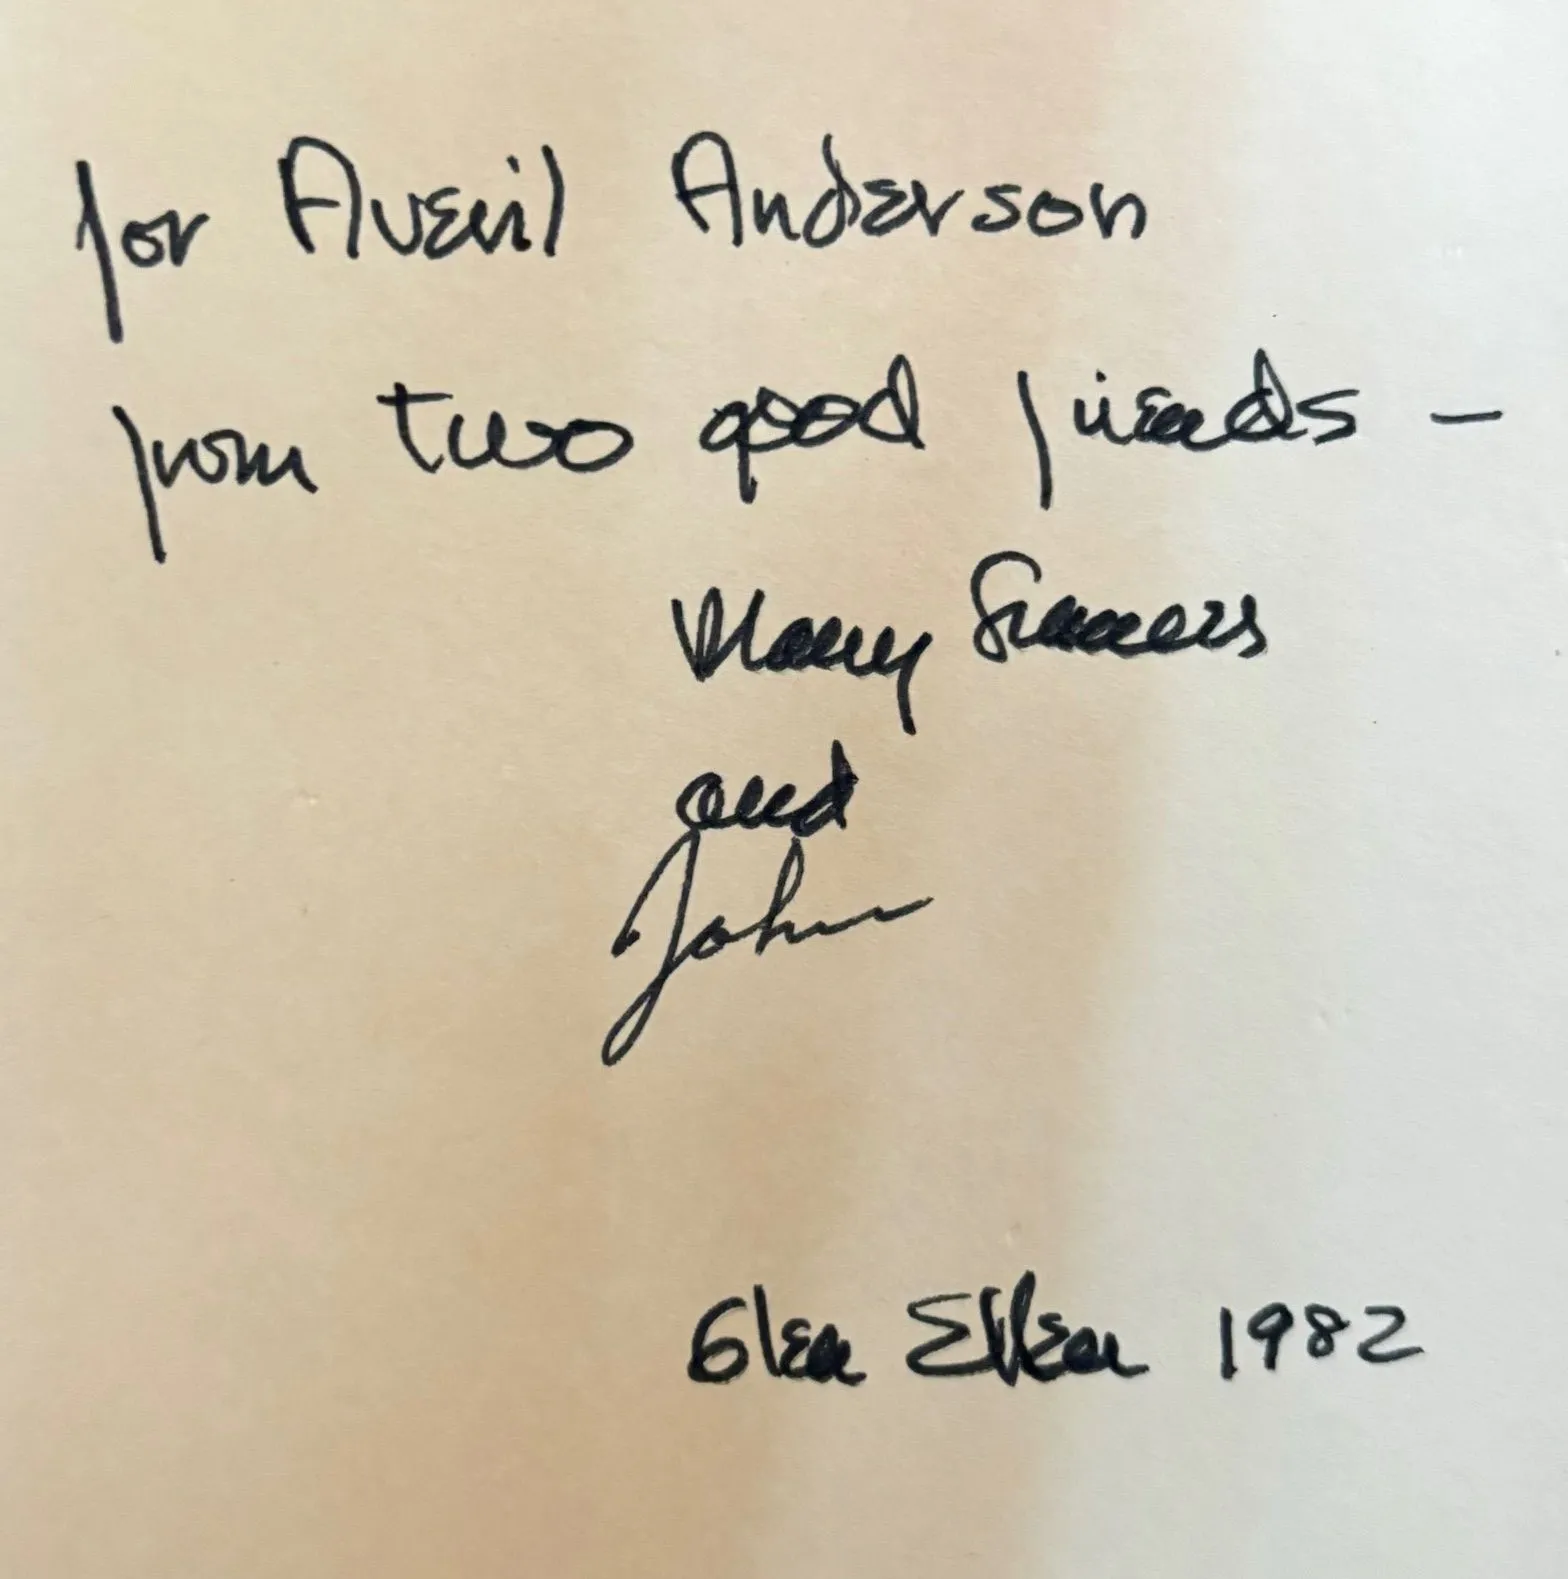 for Averil Anderson
from two good friends —
Mary Frances
and
John
Glen Ellen 1982